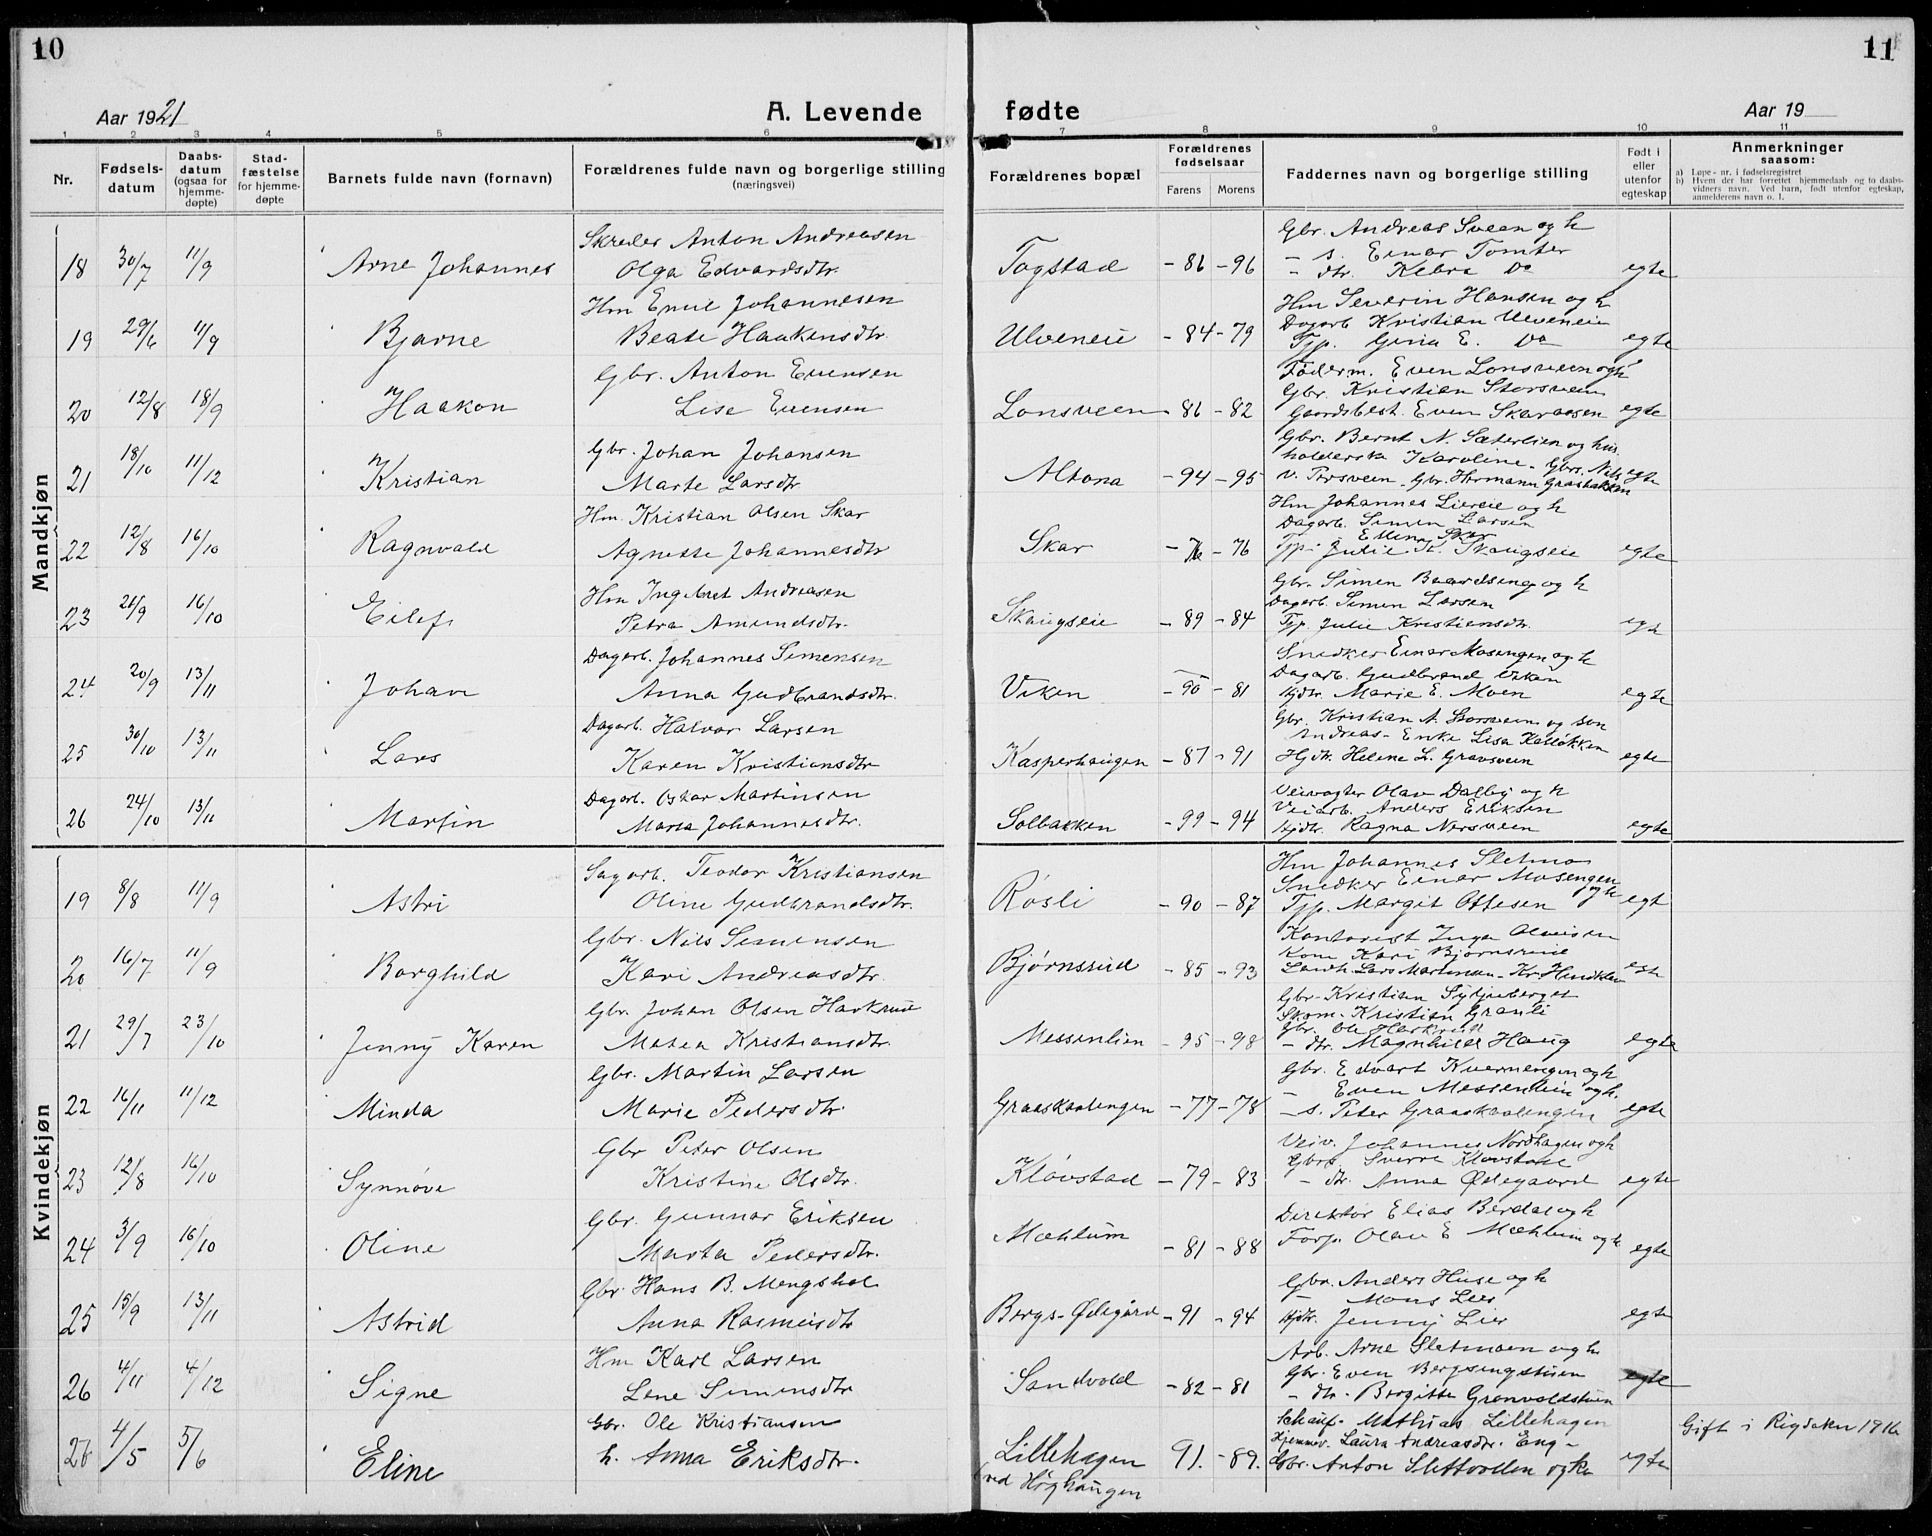 10
11
Aar 1921
A. Levende
fødte
Aar 19
1 2 3 4 5 6 7 8 9 10 11
Nr.
Fødsels-
datum
Daabs-
datum
(ogsaa for
hjemme-
døpte)
Stad-
fæstelse
for hjemme-
døpte
Barnets fulde navn (fornavn)
Forældrenes fulde navn og borgerlige stilling
(næringsvei)
Forældrenes bopæl
Forældrenes
fødselsaar
Farens Morens
Faddernes navn og borgerlige stilling
Født i
eller
utenfor
egteskap
Anmerkninger
saasom:
a) Løpe-nr. i fødselsregistret
b) Hvem der har forrettet hjemmedaab og to daabs-
vidners navn. Ved barn, født utenfor egteskap,
anmelderens navn o. l.
Mandkjøn
18 30/7 11/9 Arne Johannes
Skreder Anton Andreasen
Olga Edvardsdtr.
Togstad - 86 - 96
Gbr. Andreas Sveen og h
- s. Einar Tomter
- dtr. Do
egte
19 29/6 11/9 Bjarne
Hm Emil Johannesen
Beate Haakensdtr.
Ulveneie - 84 - 79
Hm Severin Hansen og h
Dagarb. Kristian Ulveneie
Tjp. Gina E. Do
egte
20 12/8 18/9 Haakon
Gbr. Anton Evensen
Lise Evensen
Lonsveen - 86 - 82
Føderm. Even Lonsveen og h
Gbr. Kristian Storsveen
Gaardsbest. Even Skaraasen
egte
21 18/10 11/12 Kristian
Gbr. Johan Johansen
Marte Larsdtr
Altona - 94 - 95
Gbr. Bernt N. Sæterlien og hus
holderske Karoline - Gbrs. Nils
v. Torsveen - Gbr. Hermann Grasbakken
egte
22 12/8 16/10 Ragnvald
Hm. Kristian Olsen Skar
Agnette Johannesdtr
Skar - 76 - 76
Hm Johannes Liereie og h
Dagarb. Simen Larsen
Ellina Skar
Tjp. Julie K. Skaugseie
egte
23 21/9 16/10 Eilef
Hm Ingebret Andreasen
Petra Amundsdtr.
Skaugseie - 89 - 84
Gbr. Simen Baardseng og h
Dagarb. Simen Larsen
Tjp. Julie Kristiansdtr.
egte
24 20/9 13/11 Johan
Dagarb. Johannes Simensen
Anna Gudbrandsdtr.
Viken - 90 - 81
Snedker Einar Mosengen og h
Dagarb. Gudbrand Viken
Hjdtr. Marie E. Moen
egte
25 30/10 13/11 Lars
Dagarb. Halvor Larsen
Karen Kristiansdtr
Kasperhaugen - 87 - 91
Gbr. Kristian A. Storsveen og søn
Andreas - Enke Lisa Kalløkken
Hjdtr. Helene L. Gravsveen
egte
26 24/10 13/11 Martin
Dagarb. Oskar Martinsen
Marta Johannesdtr.
Solbakken - 99 - 94
Veivogter Olav Dalby og h
Veiarb. Anders Eriksen
Hjdtr. Ragna Nersveen
egte
Kvindekjøn
19 8/8 11/9 Astri
Sagarb. Teodor Kristiansen
Oline Gudbrandsdtr.
Røsli - 90 - 87
Hm Johannes Sletmo
Snedker Einar Mosengen
og h
Tjp. Margit Ottesen
egt
20 16/7 11/9 Borghild
Gbr. Nils Simensen
Kari Andreasdtr.
Bjørnsrud - 85 - 93
Kontorist Inga Olavsen
Kone Kari Bjørnsrud
Landh. Lars Martinsen - Kr. Hindklev
egte
21 29/7 23/10 Jenny Karen
Gbr. Johan Olsen Harkrud
Matea Kristiansdtr.
Messenlien - 95 - 98
Gbr. Kristian Sylju­berget
Skom. Kristian Granli
Gbr. Ole Harkrud
- dtr. Magnhild Haug
egte
22 16/11 11/12 Minda
Gbr. Martin Larsen
Marie Pedersdtr.
Graaskaalengen - 77 - 78
Gbr. Edvart Kvernengen og h
- Even Messenlien og h.
- s. Peter Graaskaalengen
egte
23 12/8 16/10 Synnøve
Gbr Peter Olsen
Kristine Olsdtr.
Kløvstad - 79 - 83
Veiv. Johannes Nordhagen og h
Gbrs. Sverre Kløvstad
- dtr. Anna Ødegaard
egte
24 3/9 16/10 Oline
Gbr. Gunnar Eriksen
Marta Pedersdtr.
Mæhlum - 81 - 88
Direktør Elias Berdal og h
Forp. Olav E Mæhlum og h
egte
25 15/9 13/11 Astrid
Gbr. Hans B. Mengshol
Anna Rasmusdtr
Bergs-Ødegård - 91 - 94
Gbr. Anders Huse og h
- Mons Lier
Hjdtr. Jenny Lier
egte
26 4/11 4/12 Signe
Hm Karl Larsen
Lene Simensdtr
Sandvold - 82 - 81
Arb. Arne Sletmoen og h.
Gbr. Even Bergsengstuen
- dtr. Birgitte Grønvoldstuen
egte
26 4/5 5/6 Eline
Gbr. Ole Kristiansen
h. Anna Eriksdtr.
Lillehagen
ved Høghaugen
91. - 89.
Schauf. Mathias Lillehagen
Hjemmev. Laura Andreasdtr. Eng -
Gbr. Anton Slettvolden og ko
egte
Gift i 1916